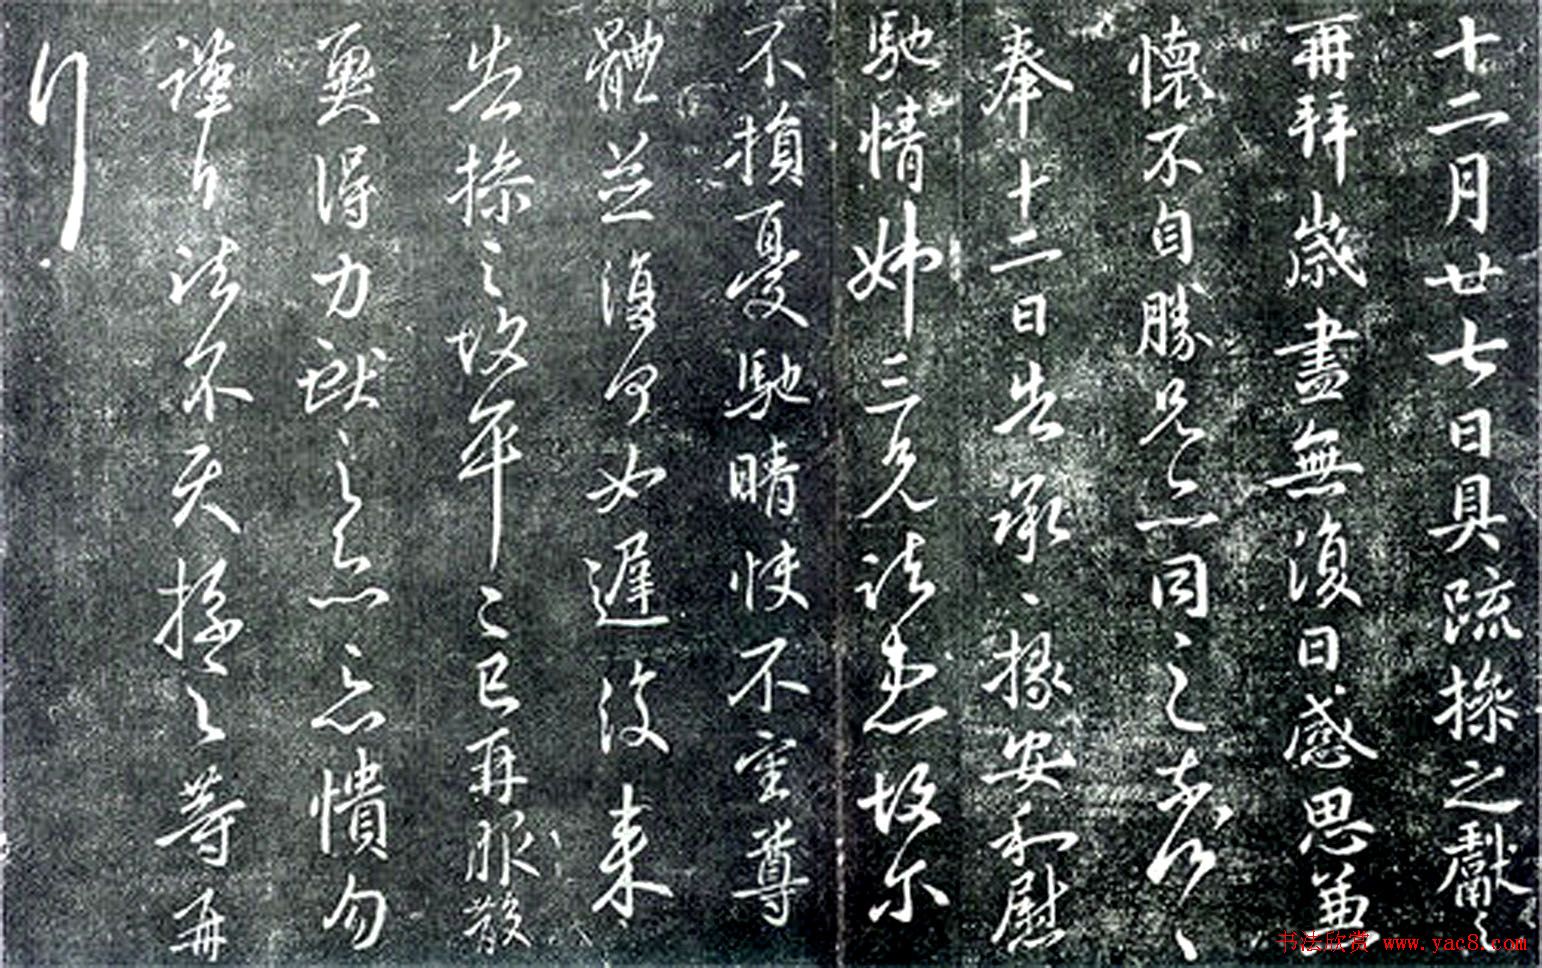 十二月廿七日具疏操之獻之
再拜歲盡無復日感思兼
懷不自勝兄亦同之
奉十二日告承掾安和慰
馳情姉三兄諸患故尔
不損憂馳晴快不審尊
體並復何如遲復來
告操之故平平已再服散
冀得力獻之憒勿
謹白諸不操之等再
书法欣赏 www.yac8.com